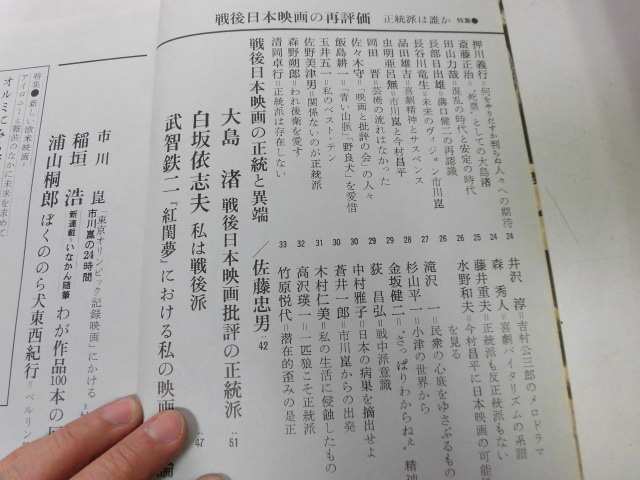 戦後日本映画の再評価 正統派は誰か 特集●
押川義行=何をやりだすか判らぬ人々への期待 24
斎藤正治=〝死票〟としての大島渚 24
田山力哉=混乱の時代と安定の時代 25
長部日出雄=溝口健二の再認識 26
長谷川竜生=未来のヴィジョン市川崑 26
品田雄吉=喜劇精神とサスペンス 27
虫明亜呂無=市川崑と今村昌平 27
岡田 晋=芸術の流れはなかった 28
佐々木守=「映画と批評の会」の人々 29
飯島耕一=「青い山脈」「野良犬」を愛惜 29
玉井五一=私のベスト・テン 30
佐野美津男=関係ないのが正統派 31
森野朔郎=われ後衛を愛す 32
清岡卓行=正統派は存在しない 33
井沢 淳=吉村公三郎のメロドラマ
森 秀人=喜劇バイタリズムの系譜
藤井重夫=正統派も反正統派もない
水野和夫=今村昌平に日本映画の可能性
を見る
滝沢 一=民衆の心底をゆさぶるもの
杉山平一=小津の世界から
金坂健二=〝さっぱりわからねぇ〟精神
荻 昌弘=戦中派意識
中村雅子=日本の病巣を摘出せよ
蒼井一郎=市川崑からの出発
木村仁美=私の生活に侵蝕したもの
高沢瑛一=一匹狼こそ正統派
竹原悦代=潜在的歪みの是正
戦後日本映画の正統と異端 /佐藤忠男‥42
大島 渚 戦後日本映画批評の正統派‥51
白坂依志夫 私は戦後派‥47
武智鉄二 『紅閨夢』における私の映画 論
市川 崑 「東京オリンピック記録映画」にかける
市川崑の24時間
稲垣 浩 新連載=いなかん随筆 わが作品100本の
浦山桐郎 ぼくののら犬東西紀行=ベルリン
特集=新しい欧米映画=
アイロニーと難民のなかに未来を求めて
オルミにみ